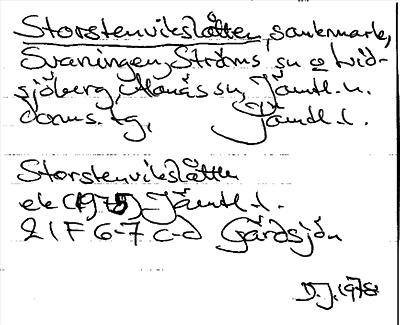 Storstenvikslåtten, sankmark,
Svaningen, Ströms sn o Hvid-
sjöberg, Alanäs sn, Jämtl. n.
doms. tg, Jämtl. l.
Storstenvikslåtten
ek (1975) Jämtl. l.
21F 6-7 c-d Gärdsjön
D.J. 1978